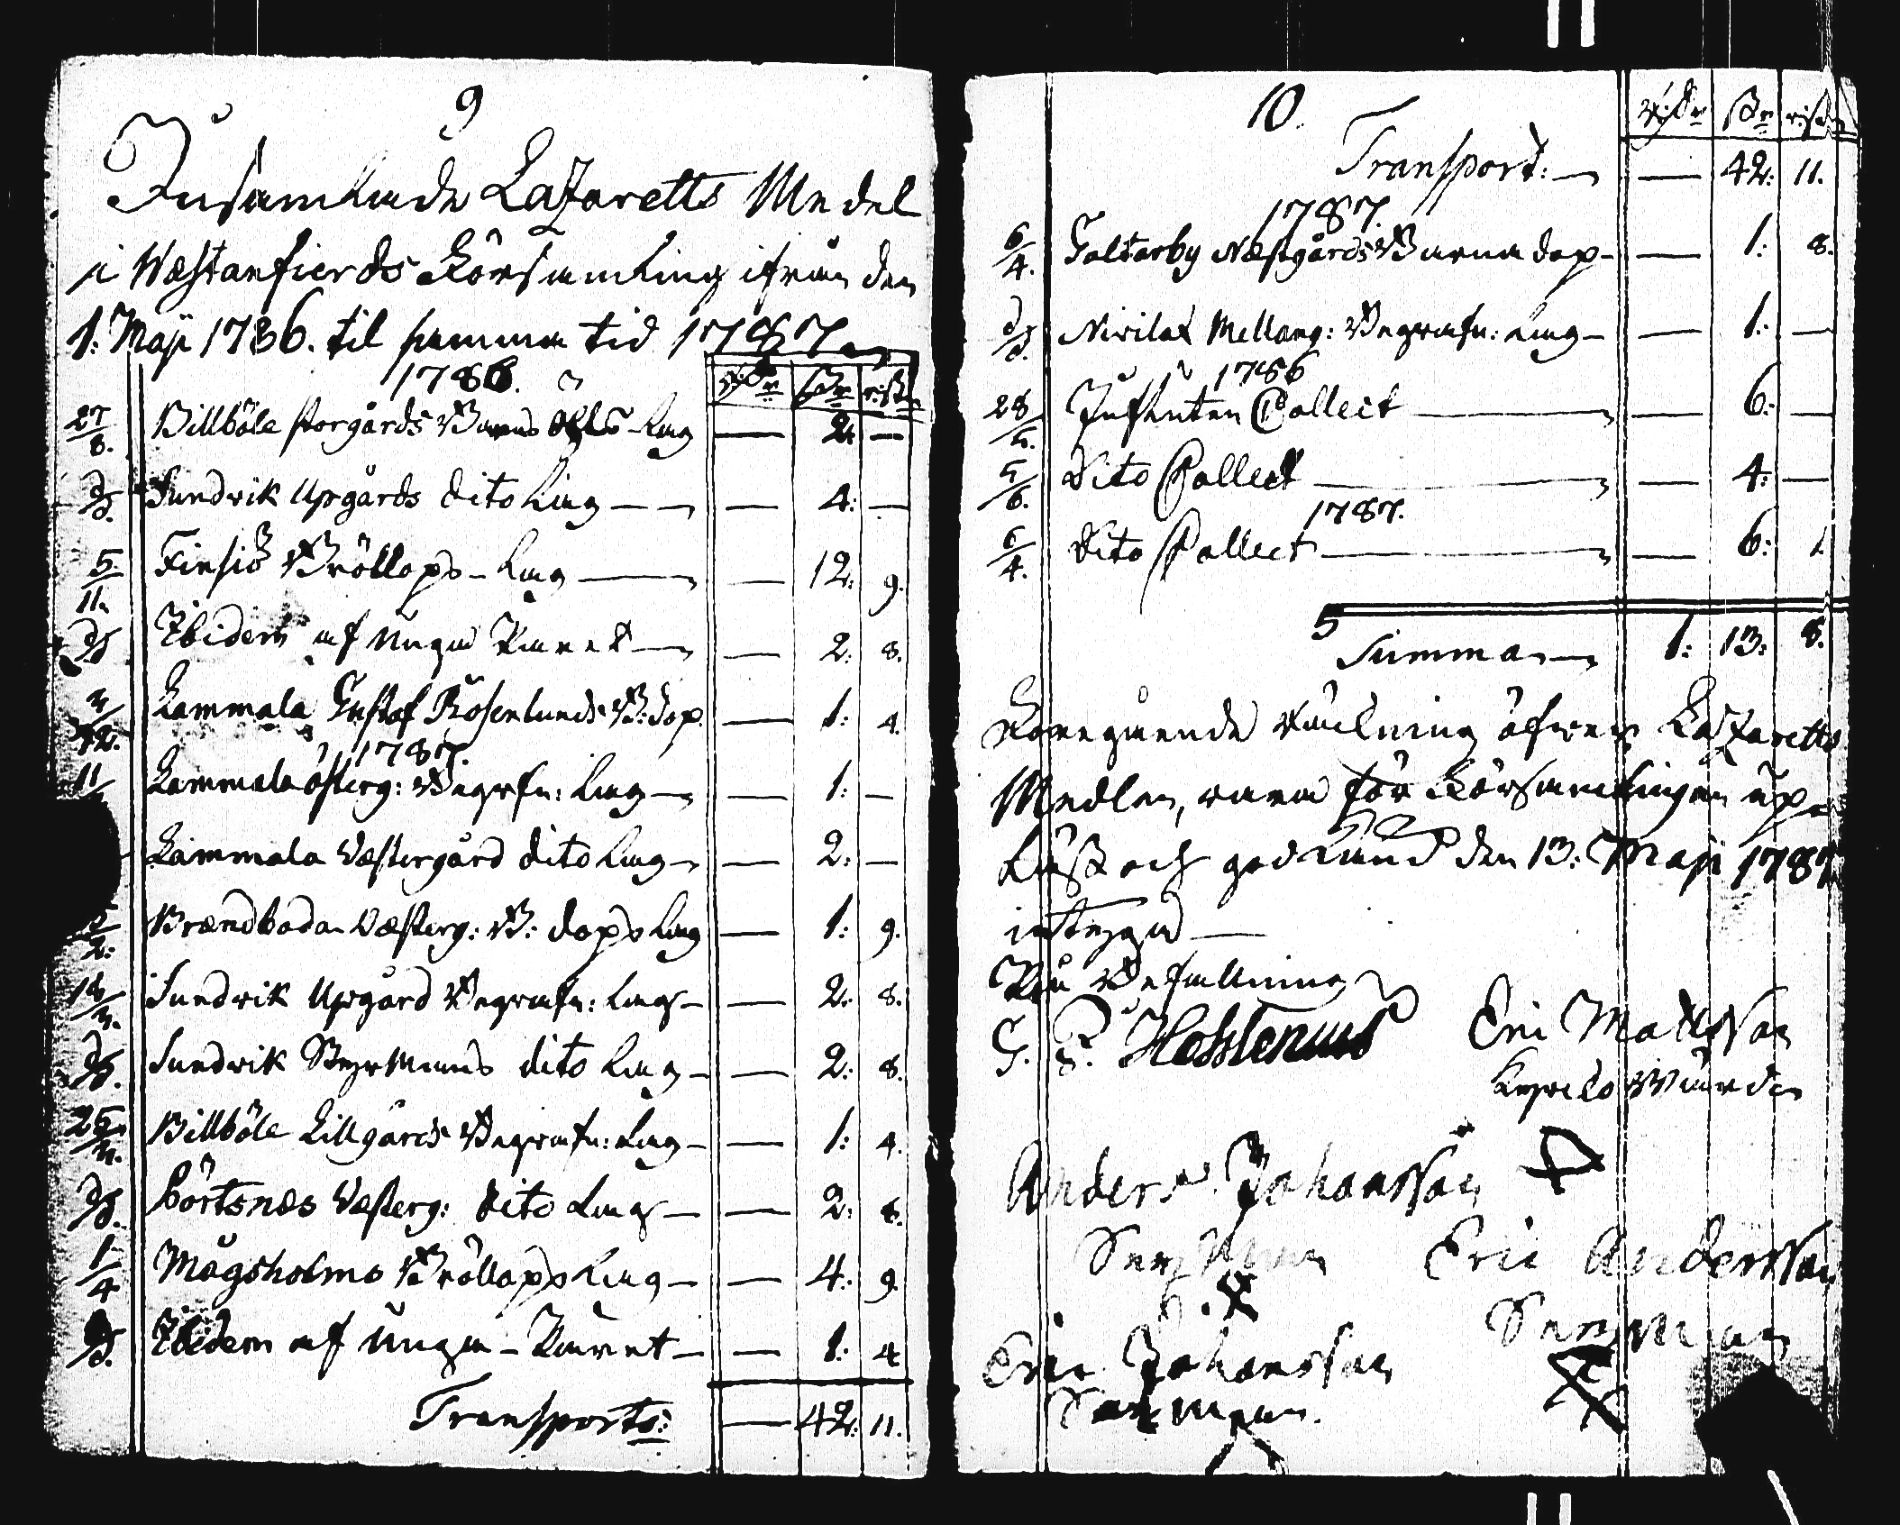 9
Insamlade Lazaretts Medel
i Wæstanfierds Församling ifrån den
1: Maji 1786. til samma tid 1787.
1786.
R:dr ßr r:st
27/8. Billböle storgårds Barns Lag — 2: —
d/o. Sundvik Upgårds dito Lag — — 4: —
5/11. Finsiö Bröllops-Lag — — 12: 9.
d/o Ibidem af unga Paret — — 2: 8.
/12. Lammala Gustaf Rosenlunds B: dop. — 1: 4.
1787.
11/ Lammala österg: Begrafn: Lag — — 1: —
Lammala Væstergård dito Lag — — 2: —
/2. Brændboda Væsterg: B: dops Lag — 1: 9.
18/3. Sundvik Upgård Begrafn: Lag — — 2: 8.
d/o. Sundvik Styrmans dito Lag — — 2: 8.
25/3. Billböle Lillgårds Begrafn: Lag — — 1: 4.
d/o. Börtsnæs Væsterg: dito Lag — — 2: 8.
1/4 Mågsholms Bröllops Lag — — 4: 9.
d/o. Ibidem af unga Paret — — 1: 4
Transport: — 42: 11.
10.
R:dr ßr r:st
Transport: — — 42: 11.
1787.
6/4. Galtarby Næstgårds Barna dop — — 1: 8.
d/o Nivilax Mellang: Begrafn: Lag — — 1: —
1786
28/5. Influten Collect — — 6: —
5/6. Dito Collect — — 4: —
1787.
6/4. Dito Collect — — 6: 1.
Summa — 1: 13: 8.
Föregående räkning öfwer Lazaretts
Medlen, vara för Församlingen up
läst och godkänd den 13: Maji 1787
intyga —
På Befallning
G. Hasslenius Eric Matsson
Kyrko Wärde
Anders Johansson
Sexman Eric Andersson
Sexman
Eric Johansson
Sexman.